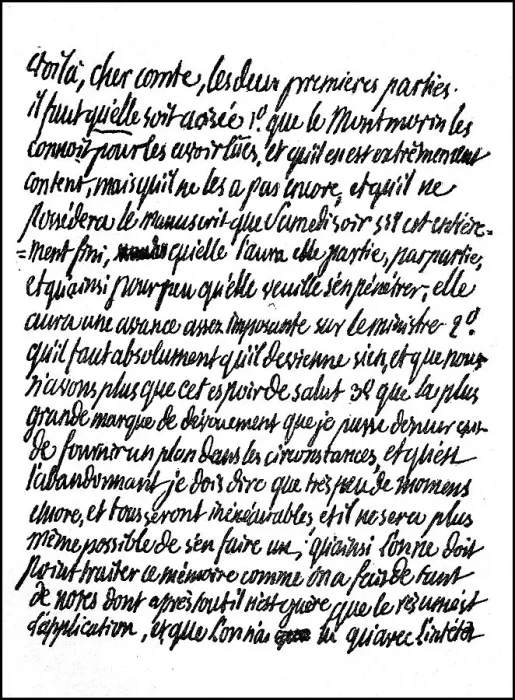 Voilà, cher comte, les deux premières parties.
il faut qu'elle soit avisée 1º. que le Montmorin les
connoît pour les avoir lües, et qu'il en est extrêmement
content, mais qu'il ne les a pas encore, et qu'il ne
possédera le manuscrit que Samedi soir s'il est entière=
=ment fini, qu'elle l'aura elle partie, par partie,
et qu'ainsi pour peu qu'elle veuille s'en pénétrer, elle
aura une avance assez imposante sur le ministre 2º.
qu'il faut absolument qu'il devienne sien, et que nous
n'avons plus que cet espoir de salut 3º que la plus
grande marque de dévouement que je puisse donner
de fournir un plan dans les circonstances, et qu'en
l'abandonnant je dois dire que très peu de momens
encore, et tous seront inexécutables, et il ne sera plus
même possible de s'en faire un; qu'ainsi l'on ne doit
point traiter ce mémoire comme on a fait de tant
de notes dont après tout il n'est guère que le résumé et
d'application, et que l'on n'a lu qu'avec l'intérêt